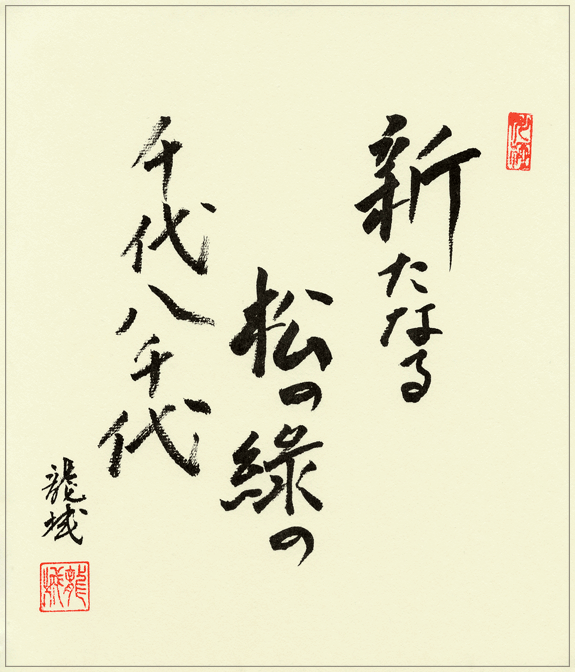 新たなる
松の緑の
千代八千代
龍城
龍城